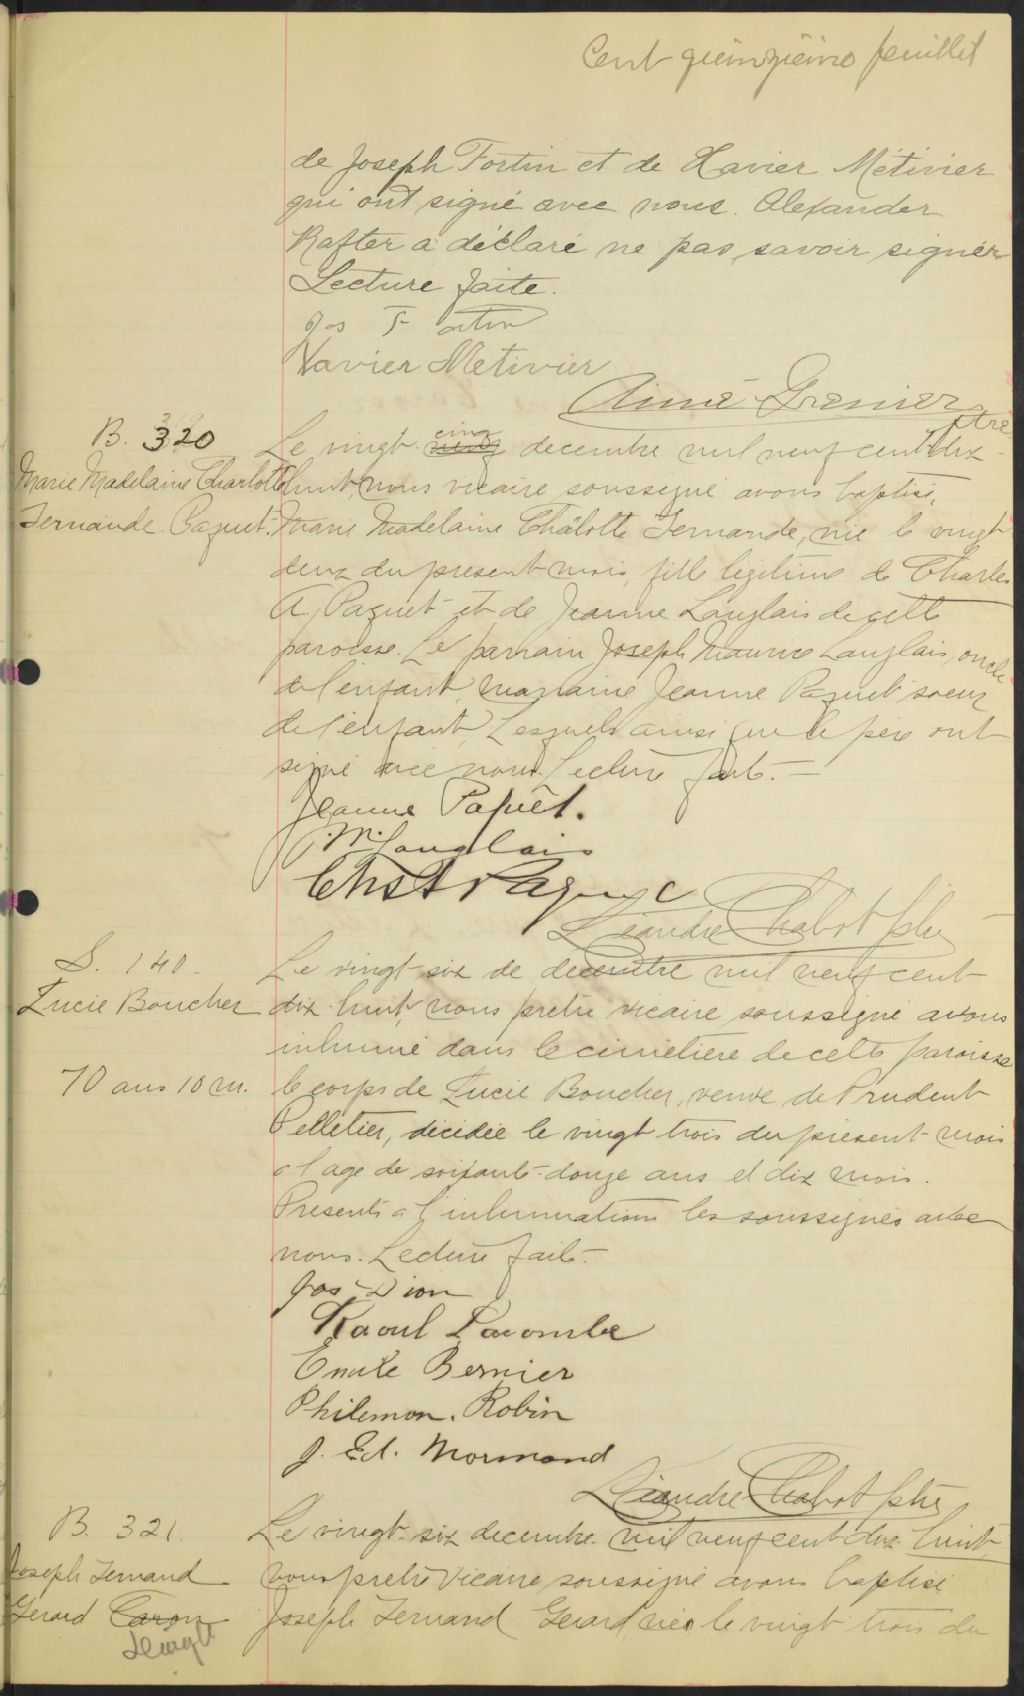 Cent quinzième feuillet
de Joseph Fortin et de Xavier Métivier
qui ont signé avec nous. Alexander
Rafter a déclaré ne pas savoir signer
Lecture faite.
Jos Fortin
Xavier Metivier
Aimé Grenier ptre
B. 320
Marie Madelaine Charlotte
Fernande Paquet.
Le vingt cinq decembre mil neuf cent dix-
huit nous vicaire soussigné avons baptisé,
Marie Madelaine Chalotte Fernande, née le vingt
deux du present mois, fille légitime de Charles
A. Paquet et de Jeanne Langlais de cette
paroisse. Le parrain Joseph Maurice Langlais, oncle
de l'enfant, marraine Jeanne Paquet soeur
de l'enfant, Lesquels ainsi que le père ont
signé avec nous. Lecture faite.-
Jeanne Paquêt.
J. M. Langlais
Chs A Paquet
Léandre Chabot ptre
S. 140.
Lucie Boucher
70 ans 10 m.
Le vingt-six de decembre mil neuf cent
dix-huit, nous pretre vicaire soussigné avons
inhumé dans le cimetière de cette paroisse
le corps de Lucie Boucher, veuve de Prudent
Pelletier, décidée le vingt trois du présent mois
à l'age de soixante-douze ans et dix mois.
Présents à l'inhumation les soussignés avec
nous. Lecture faite.-
Jos Dion
Raoul Lacombe
Emile Bernier
Philemon. Robin
J. Ed. Normand
Léandre Chabot ptre
B. 321.
Joseph Fernand
Gerard Caron
Le vingt-six decembre mil neuf cent dix-huit,
nous pretre vicaire soussigné avons baptisé
Joseph Fernand Gerard, né le vingt trois du